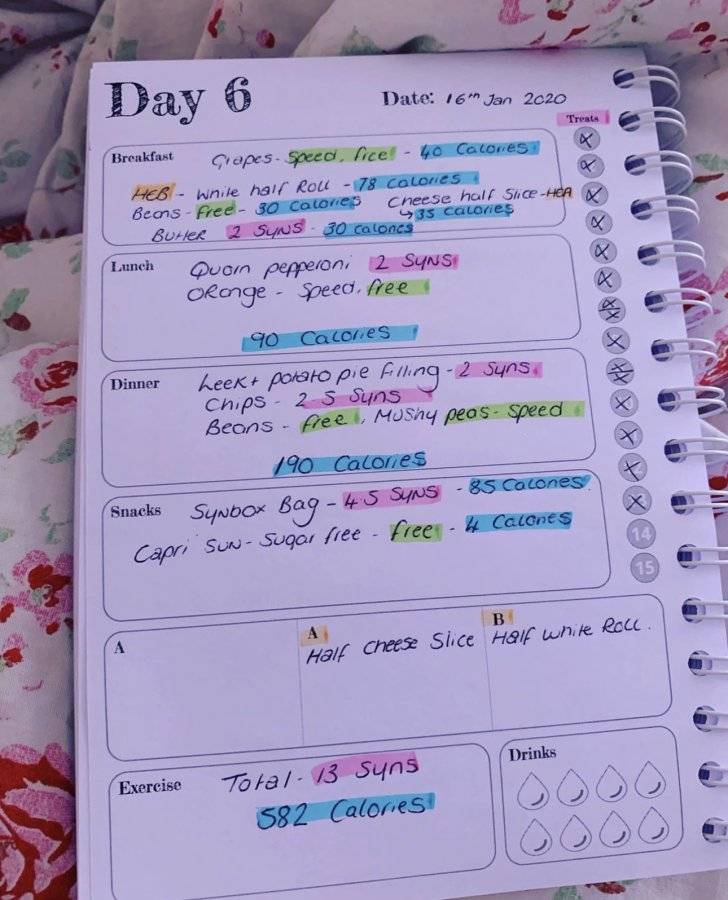 Day 6
Date: 16th Jan 2020
Treats
Breakfast Grapes - Speed, free - 40 Calories
HEB - White half Roll - 78 Calories
Beans - Free - 30 Calories Cheese half Slice - HEA
↳ 35 Calories
Butter 2 Syns - 30 Calories
Lunch Quorn pepperoni 2 Syns
Orange - Speed, free
90 Calories
Dinner Leek + potato pie filling - 2 Syns
Chips - 2 5 Syns
Beans - free, Mushy peas - Speed
190 Calories
Snacks Synbox Bag - 4.5 Syns - 85 Calories
Capri Sun - Sugar free - free - 4 Calories
14
15
A
A
Half Cheese Slice
B
Half White Roll.
Exercise Total - 13 Syns
582 Calories
Drinks